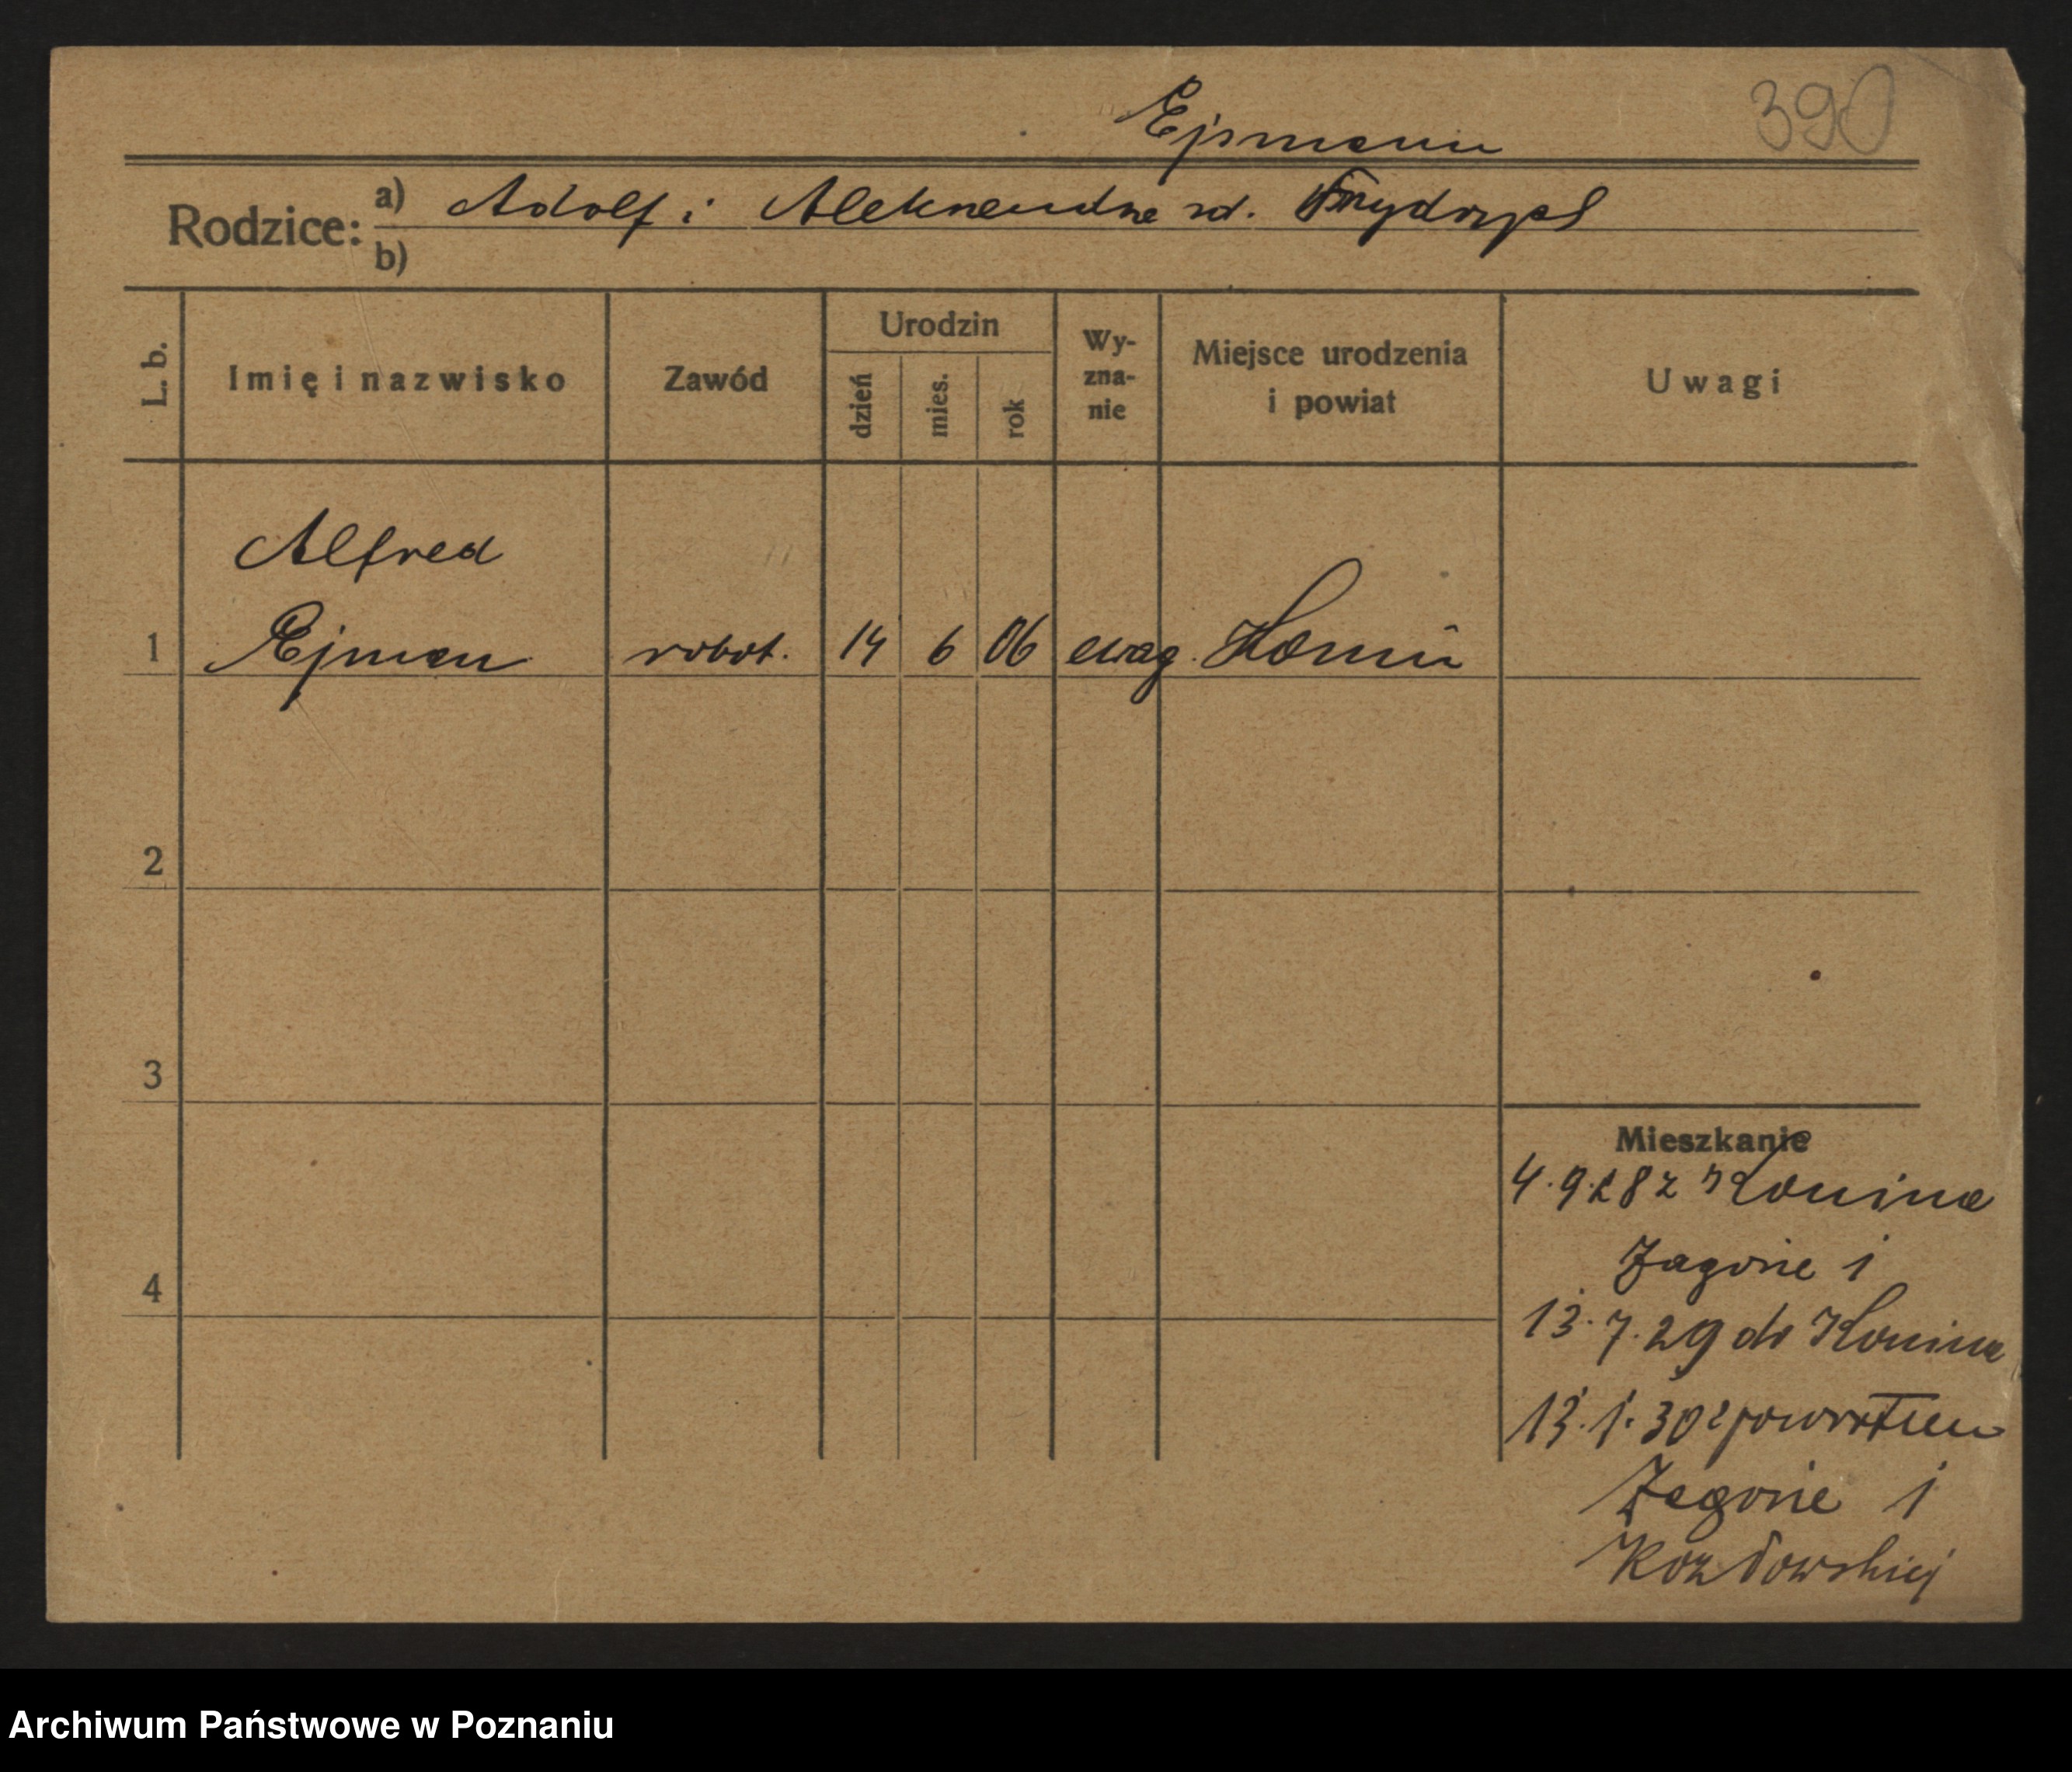 Ejsmann
390
Rodzice:
a) Adolf i Aleksandra rd. Frydrych
b)
L. b.
Imię i nazwisko
Zawód
Urodzin
dzień
mies.
rok
Wy-
zna-
nie
Miejsce urodzenia
i powiat
Uwagi
Alfred
1 Ejman robot. 14 6 06 ewag. Konin
2
3
4
Mieszkanie
4.9.28 z Konina
Zagórze 1
13.7.29 do Konina
13.1.30 z powrotem
Zagórze 1
Kozłowskiej
Archiwum Państwowe w Poznaniu